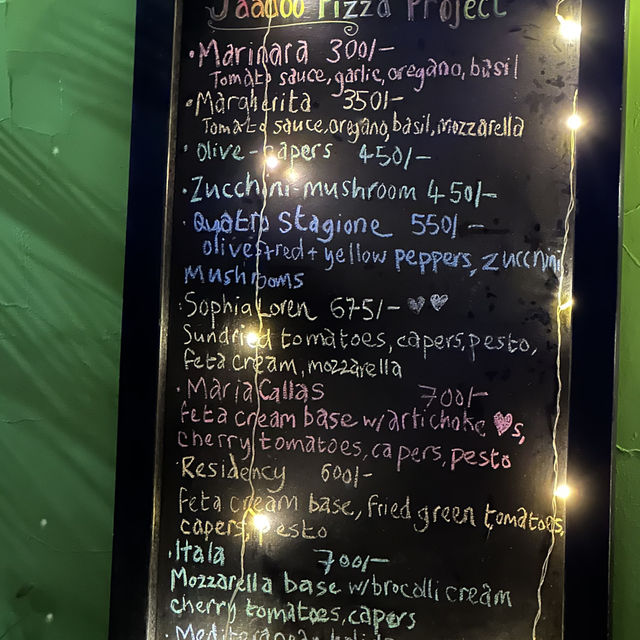 Jaadoo Pizza Project
• Marinara 300/-
Tomato sauce, garlic, oregano, basil
• Margherita 350/-
Tomato sauce, oregano, basil, mozzarella
• Olive-capers 450/-
• Zucchini-mushroom 450/-
• Quatro Stagione 550/-
olives+red+yellow peppers, zucchini
Mushrooms
• Sophia Loren 675/- ♥♥
Sundried tomatoes, capers, pesto,
feta cream, mozzarella
• Maria Callas 700/-
feta cream base w/artichoke ♥s,
cherry tomatoes, capers, pesto
• Residency 600/-
feta cream base, fried green tomatoes,
capers, pesto
• Itala 700/-
Mozzarella base w/brocolli cream
cherry tomatoes, capers
• Mediteranean